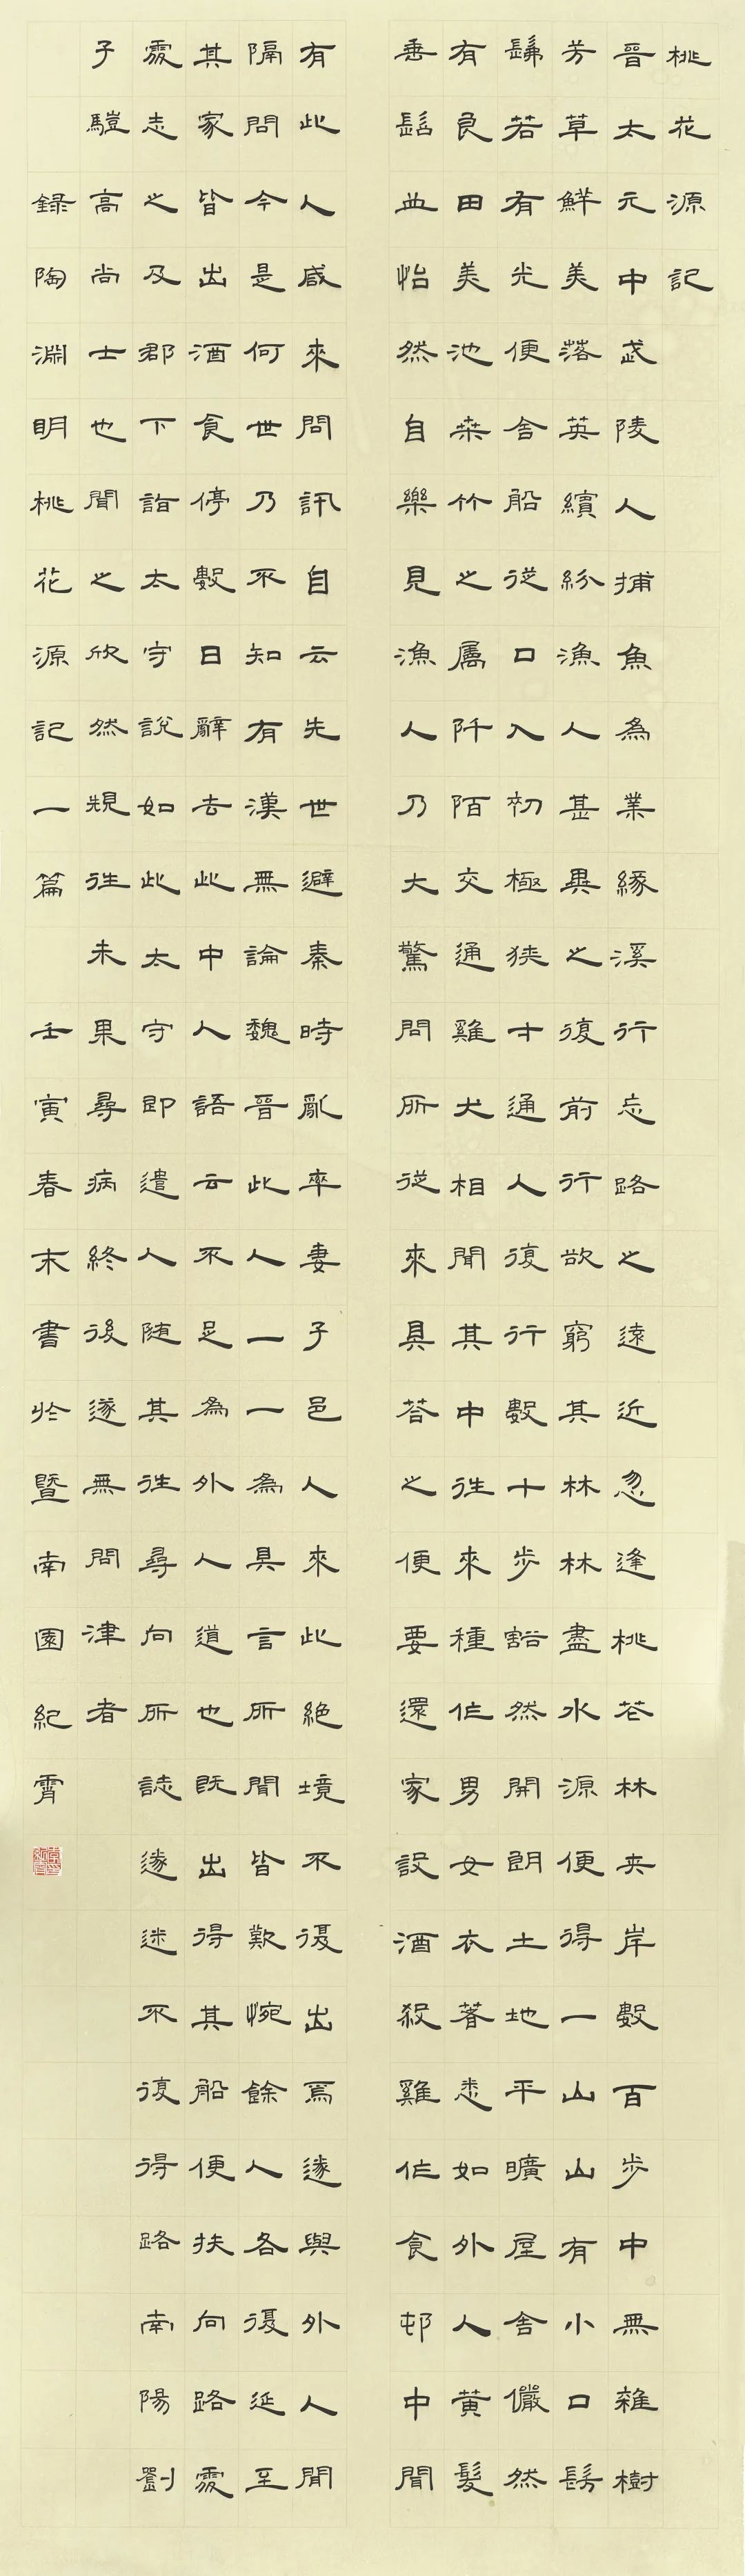 桃花源記
晉太元中武陵人捕魚為業緣溪行忘路之遠近忽逢桃花林夾岸數百步中無雜樹
芳草鮮美落英繽紛漁人甚異之復前行欲窮其林林盡水源便得一山山有小口髣
髴若有光便舍船從口入初極狹才通人復行數十步豁然開朗土地平曠屋舍儼然
有良田美池桑竹之属阡陌交通雞犬相聞其中往來種作男女衣著悉如外人黃髮
垂髫並怡然自樂見漁人乃大驚問所從來具荅之便要還家設酒殺雞作食邨中聞
有此人咸來問訊自云先世避秦時亂率妻子邑人來此絕境不復出焉遂與外人閒
隔問今是何世乃不知有漢無論魏晉此人一一為具言所聞皆歎惋餘人各復延至
其家皆出酒食停數日辭去此中人語云不足為外人道也既出得其船便扶向路處
處志之及郡下詣太守說如此太守即遣人随其往尋向所誌遂迷不復得路南陽劉
子驥高尚士也聞之欣然規往未果尋病終後遂無問津者
錄陶淵明桃花源記一篇 壬寅春末書於暨南園紀霄